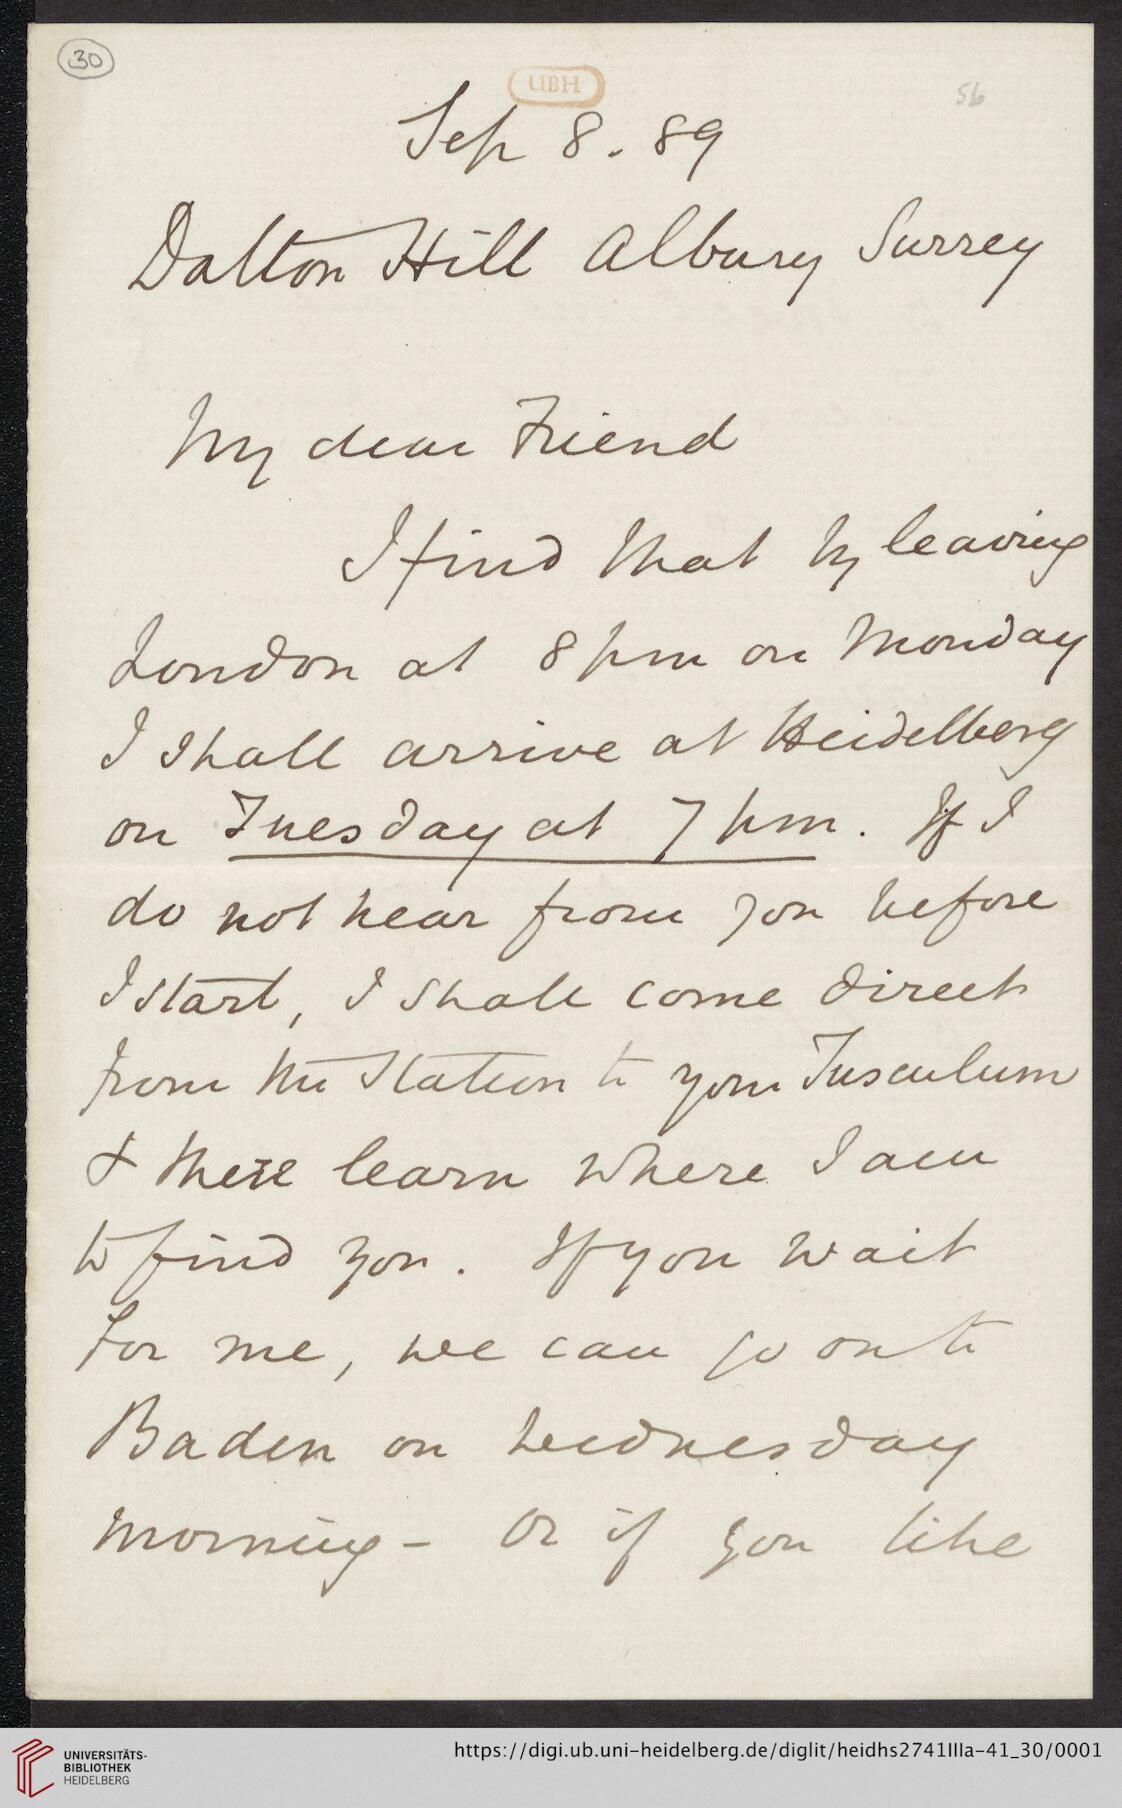 30
UBH
56
Sep 8. 89
Dalton Hill Albury Surrey
My dear Friend
I find that by leaving
London at 8 pm on Monday
I shall arrive at Heidelberg
on Tuesday at 7 pm. If I
do not hear from you before
I start, I shall come direct
from the Station to your Tusculum
& there learn where I am
to find you. If you wait
for me, we can go on to
Baden on Wednesday
morning - or if you like
UNIVERSITÄTS-
BIBLIOTHEK
HEIDELBERG
https://digi.ub.uni-heidelberg.de/diglit/heidhs2741IIIa-41_30/0001